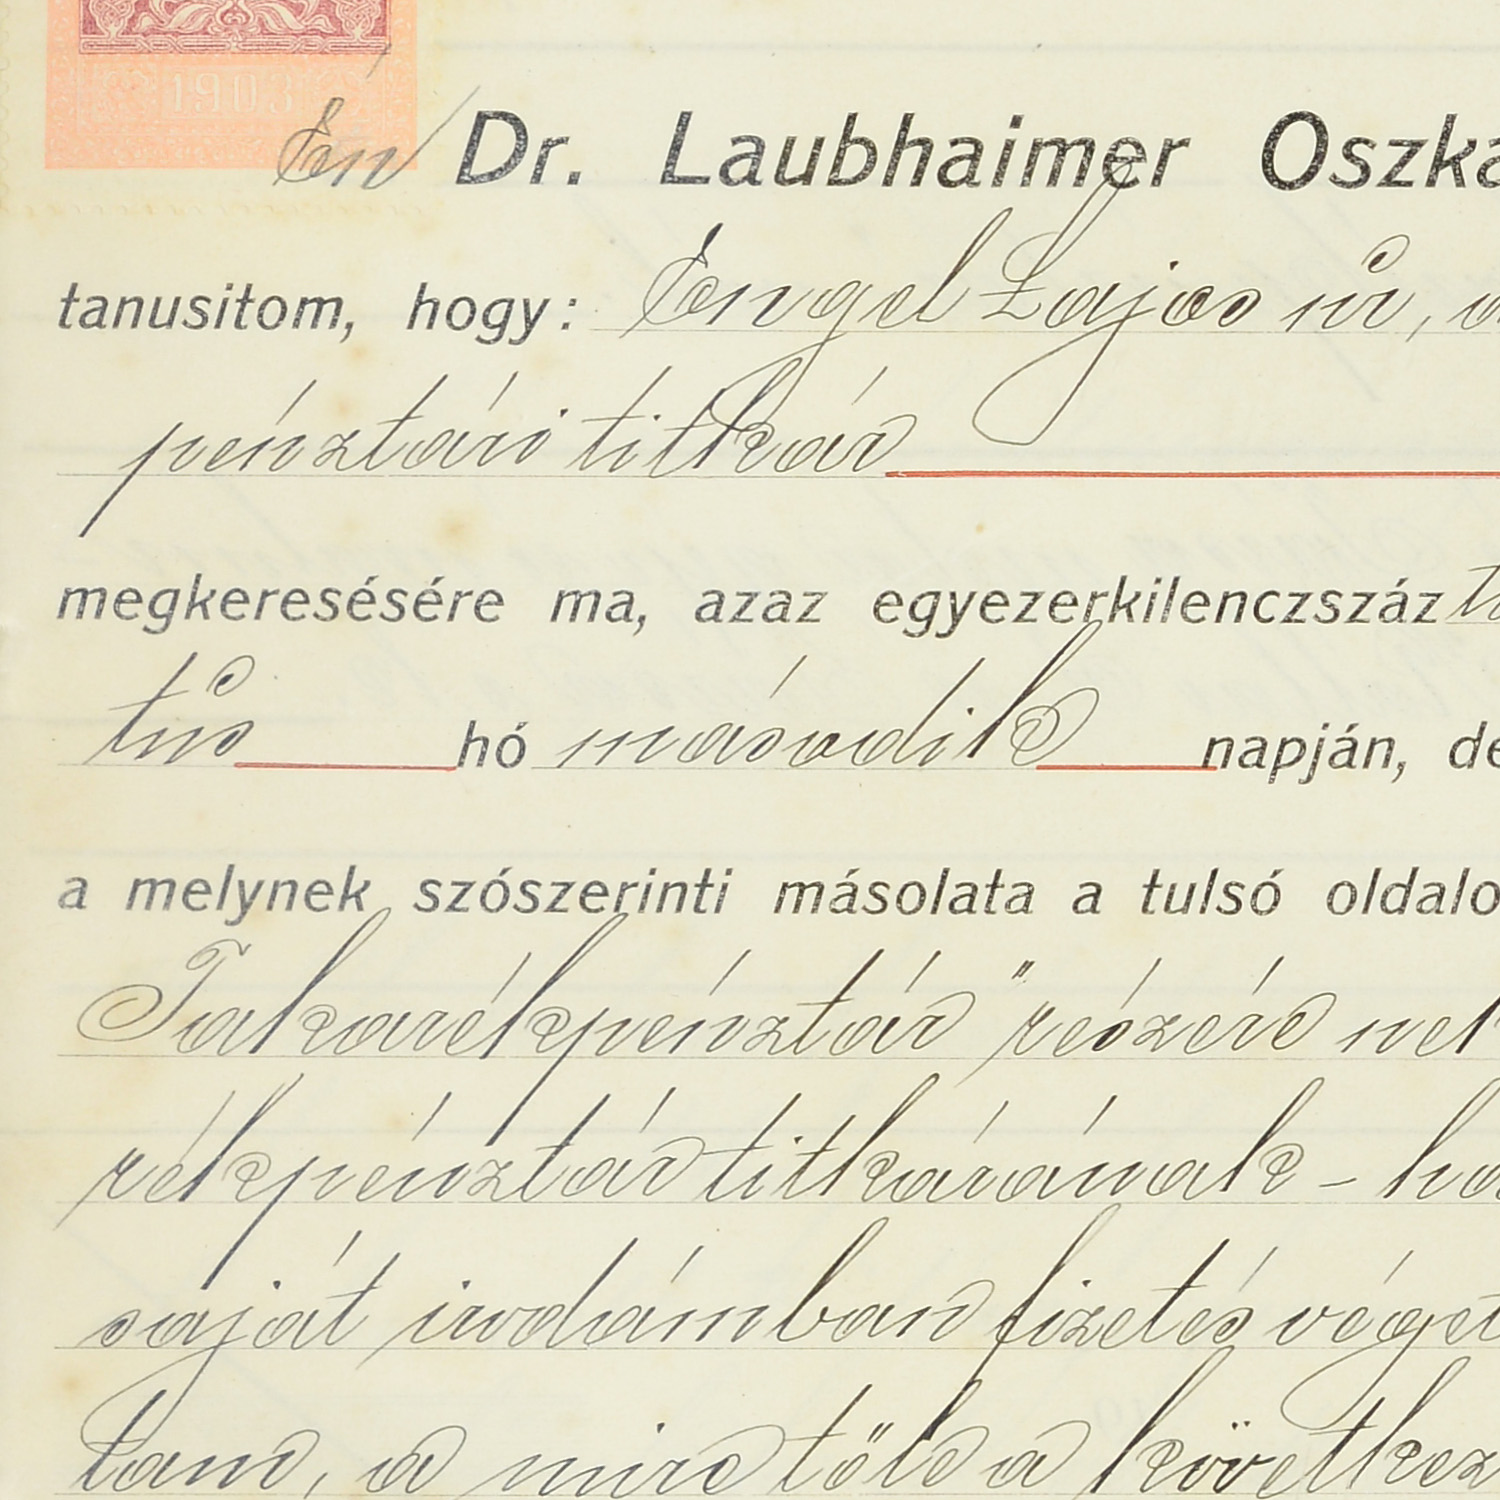 1903
Én Dr. Laubhaimer Oszká
tanusitom, hogy: Engel Lajos úr, a
pénztári titkár
megkeresésére ma, azaz egyezerkilenczszáz ti
tus hó második napján, dé
a melynek szószerinti másolata a tulsó oldalo
Takarékpénztár" részére nek
rékpénztár titkárának - ha
saját irodámban fizetés véget
tam, a mire tőle a következ